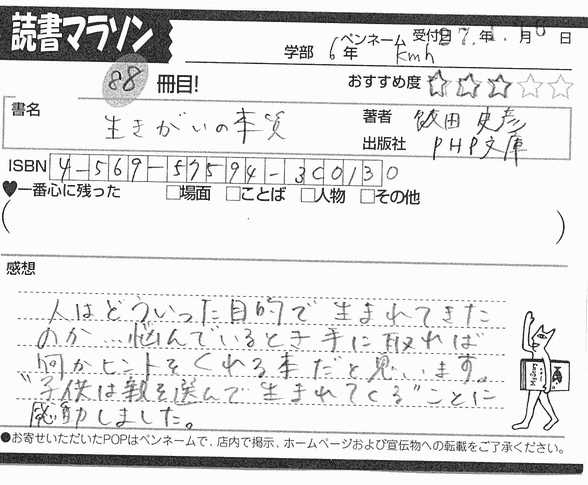 読書マラソン
受付日 27. 年 1. 月 16 日
学部 6年 ペンネーム kmh
88 冊目!
おすすめ度 ☆☆☆☆☆
書名 生きがいの本質
著者 飯田 史彦
出版社 PHP文庫
ISBN 4-569-57594-3C0130
♥一番心に残った □場面 □ことば □人物 □その他
( )
感想
人はどういった目的で生まれてきた
のか…悩んでいるとき手に取れば
何かヒントをくれる本だと思います。
"子供は親を選んで生まれてくる"ことに
感動しました。
●お寄せいただいたPOPはペンネームで、店内で掲示、ホームページおよび宣伝物への転載をご了承ください。